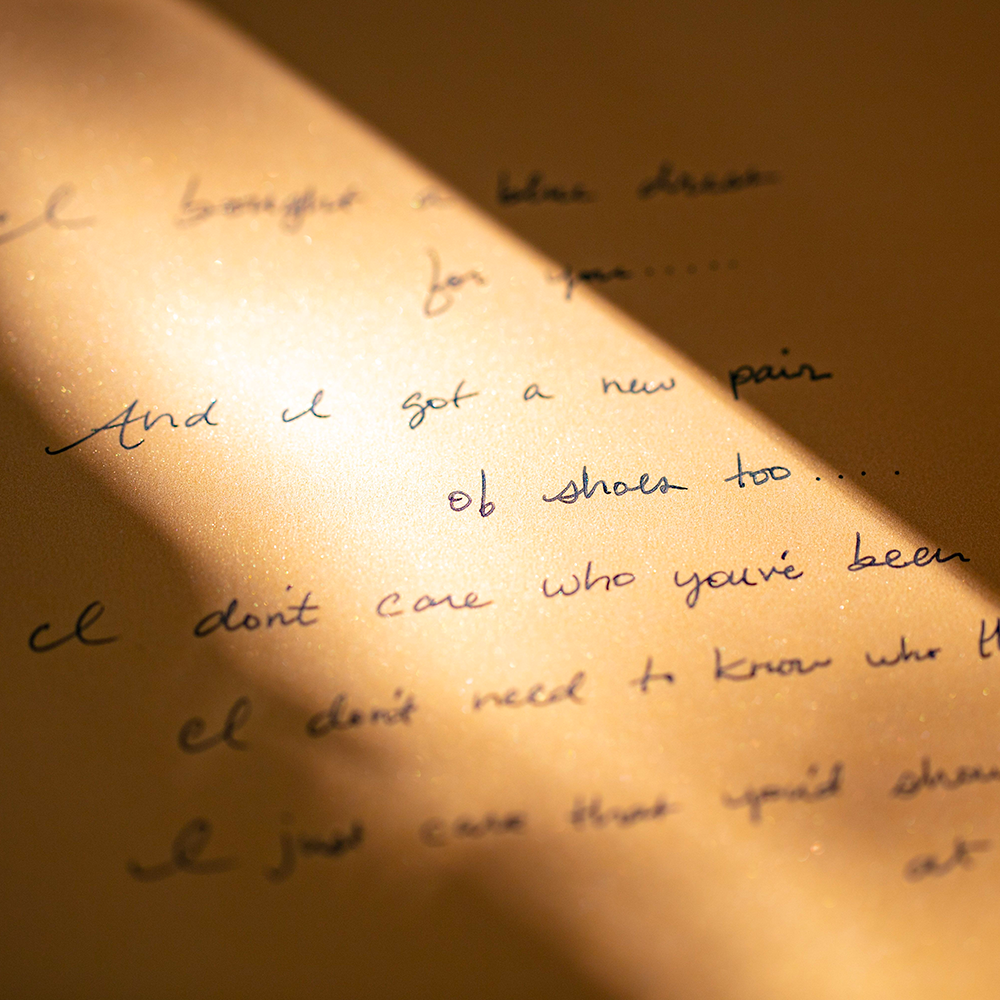 I bought a blue dress
for you.....
And I got a new pair
of shoes too....
I don't care who you've been
I don't need to know who
I just care that you'd
at